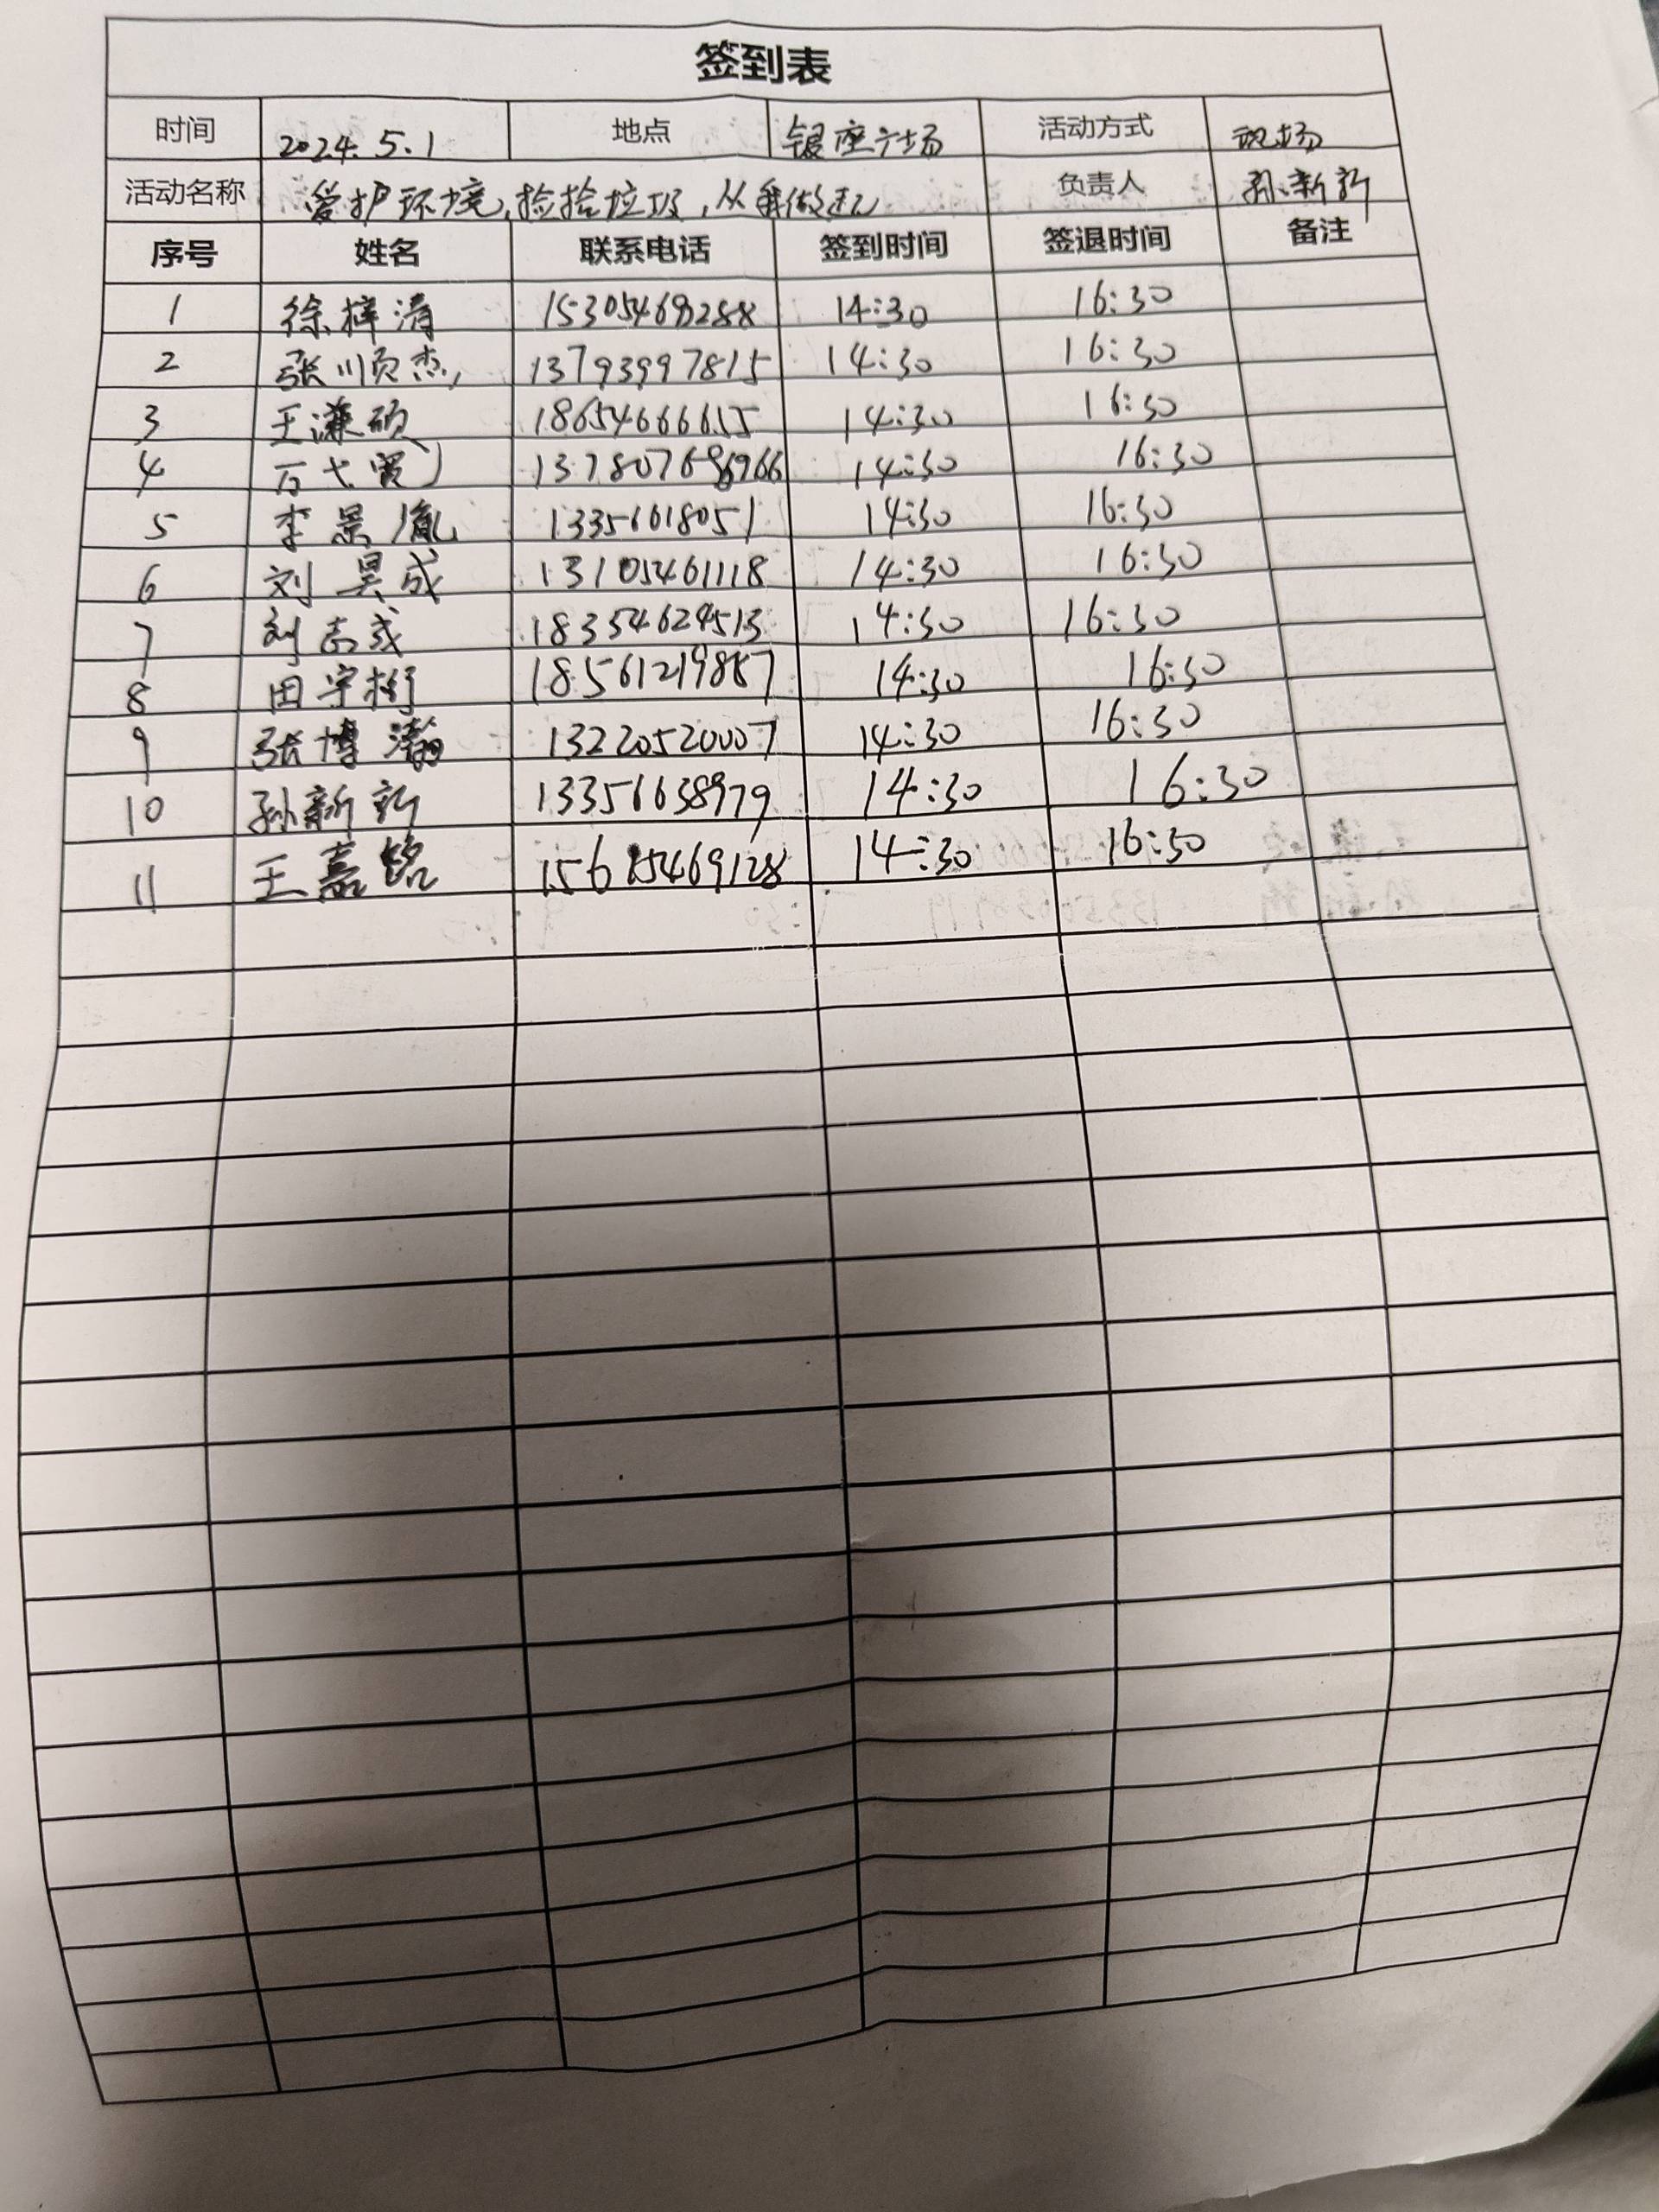 签到表
时间 2024.5.1 地点 银座广场 活动方式 现场
活动名称 爱护环境,捡拾垃圾,从我做起 负责人 孙新新
序号 姓名 联系电话 签到时间 签退时间 备注
1 徐梓清 15305469288 14:30 16:30
2 张顺杰 13793997815 14:30 16:30
3 王濂硕 18654666655 14:30 16:30
4 14:30 16:30
5 李景胤 13356618051 14:30 16:30
6 刘昊成 13105461118 14:30 16:30
7 刘志成 18354629513 14:30 16:30
8 田宇桁 18561219887 14:30 16:30
9 张博瀚 13220520007 14:30 16:30
10 孙新新 13356638979 14:30 16:30
11 王嘉铭 15615469128 14:30 16:30